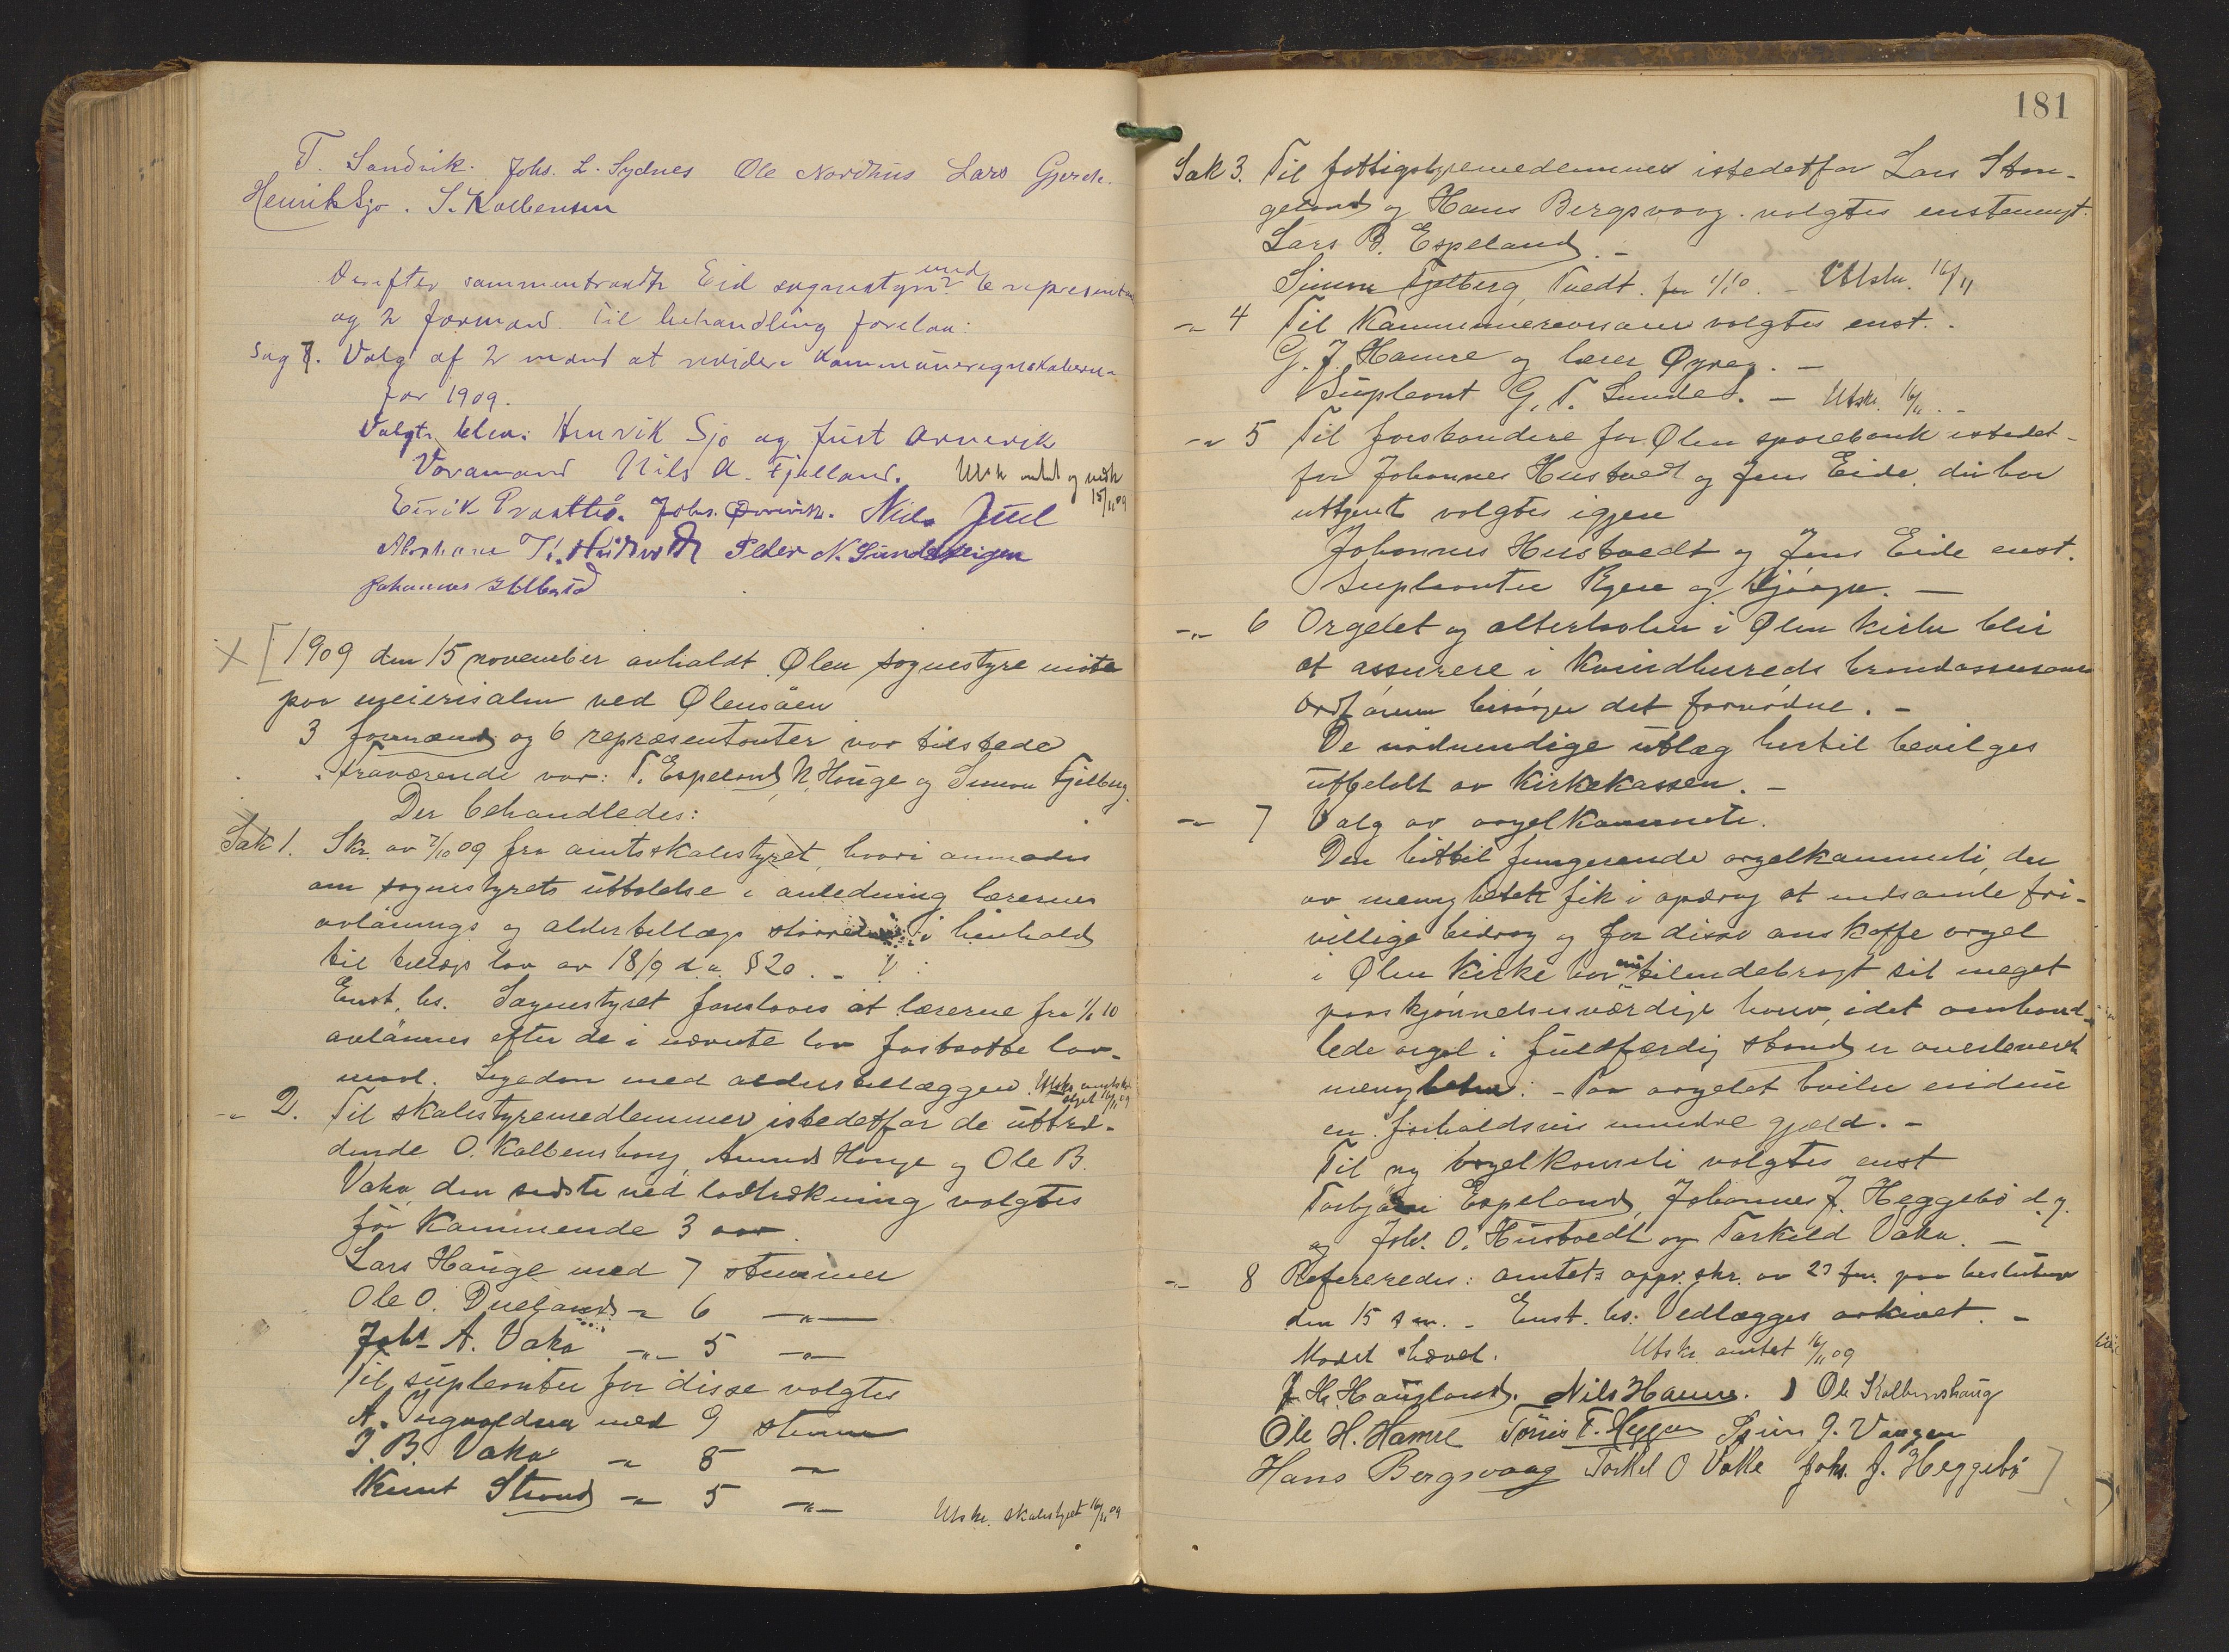 T. Sandvik. Johs. L. Sydnes Ole Nordhus Lars Gjerde.
Henrik Sjo. S. Kolbensen
Derefter sammentraadte Eid sognestyre med 6 repræsentan
og 2 formænd. Til behandling forelaa:
Sag 7. Valg af 2 mænd at revidere kommuneregnskaberne
for 1909.
Valgte blev: Henrik Sjo og Just Arnevik
Varamand Nils A. Fjelland. Utsk amtet og
15/11 09
Eirik Prestbø. Johs. Nils Juel
Abraham T. Peder N. Sundsteigen
Johannes
1909 den 15 november avholdt Ølen sognestyre møte
paa meierisalen ved Ølensøen
3 formænd og 6 repræsentanter var tilstede
fraværende var: T. Espeland, N. Hauge og Simon Fjelberg.
Der behandledes:
Sak 1. Skr. av 7/10 09 fra amtsskolestyret, hvori anmodes
om sognestyrets uttalelse i anledning lærernes
avlønnings og alderstillægs størrelse i henhold
til tillægs lov av 18/9 d.a. § 20. -
Enst. bs. Sognestyret foreslaaes at lærerne fra 1/1 10
avlønnes efter de i nævnte lov fastsatte lav-
maal. Ligedan med alderstillæggen. Utskr. amtsko-
styret 16/11 09
-"- 2. Til skolestyremedlemmer istedetfor de uttræ-
dende O. Kolbenshaug, Amund Hauge og Ole B.
Vaka, den sidste ved lodtrækning valgtes
for kommende 3 aar.
Lars Hauge med 7 stemmer
Ole O. Dueland -"- 6 -"-
Johs A. Vaka -"- 5 -"-
Til suplenter for disse valgtes
A. Ingvaldsen med 9 stemmer
T. B. Vaka -"- 8 -"-
Knut Strand -"- 5 -"-
Utskr. skolestyret 16/11 09
181
Sak 3. Til fattigstyremedlemmer istedetfor Lars Stan-
geland og Hans Bergsvaag valgtes enstemmigt.
Lars B. Espeland. -
Simon Fjelberg, Tvedt. fra 1/1 10. - Utskr. 16/11
-"- 4 Til kommunerevisorer valgtes enst. -
G. J. Hamre og lærer Øyrås. -
Supleant G. T. Sunde. - Utskr. 16/11. -
-"- 5 Til forstandere for Ølen sparebank istedet-
for Johannes Hustvedt og Jens Eide, der har
uttjent valgtes igjen
Johannes Hustvedt og Jens Eide enst.
Suplanter og -
-"- 6 Orgelet og altertavlen i Ølen kirke blir
at assurere i Kvindhereds brandassurance
Ordføreren besørger det fornødne. -
De nødvendige utlæg hertil bevilges
utbetalt av kirkekassen. -
-"- 7 Valg av orgelkommite.
Den hittil fungerende orgelkommite, der
av menigheten fik i opdrag at indsamle fri-
villige bidrag og for disse anskaffe orgel
i Ølen kirke har nu tilendebragt sit meget
paaskjønnelsesværdige hverv, idet omhand-
lede orgel i fuldfærdig stand er overleveret
menigheten. - Paa orgelet hviler endnu
en forholdsvis mindre gjæld. -
Til ny orgelkomite valgtes enst
Torbjørn Espeland, Johannes J. Heggebø d.y.
og Johs. O. Hustvedt og Torkild Vaka. -
-"- 8 Refereredes: amtets appr. skr. av 23 f.m. paa beslutning
den 15 s.m. - Enst. bs: Vedlægges arkivet. -
Mødet hævet. Utskr. amtet 16/11 09
J. H. Haugland. Nils Hamre. Ole Kolbenshaug
Ole H. Hamre Tønnes T. J. Vaagen
Hans Bergsvaag Torkel O Vake Johs. J. Heggebø